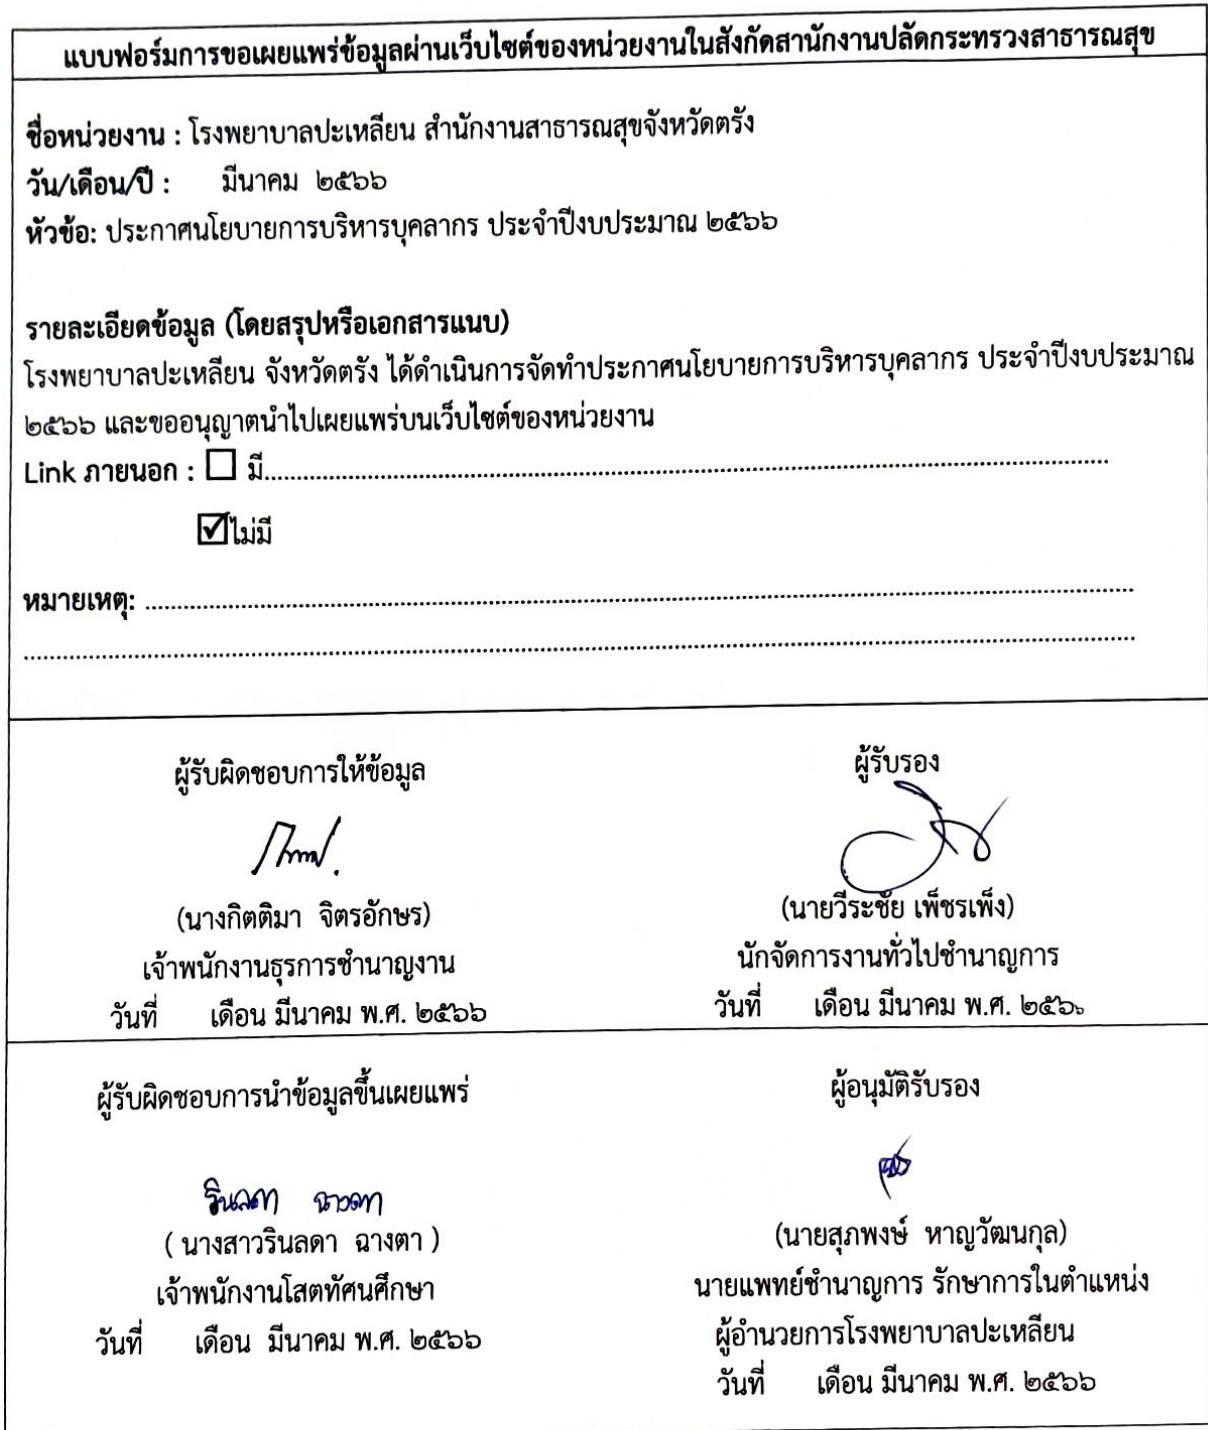 แบบฟอร์มการขอเผยแพร่ข้อมูลผ่านเว็บไซต์ของหน่วยงานในสังกัดสานักงานปลัดกระทรวงสาธารณสุข
ชื่อหน่วยงาน : โรงพยาบาลปะเหลียน สำนักงานสาธารณสุขจังหวัดตรัง
วัน/เดือน/ปี : มีนาคม ๒๕๖๖
หัวข้อ: ประกาศนโยบายการบริหารบุคลากร ประจำปีงบประมาณ ๒๕๖๖
รายละเอียดข้อมูล (โดยสรุปหรือเอกสารแนบ)
โรงพยาบาลปะเหลียน จังหวัดตรัง ได้ดำเนินการจัดทำประกาศนโยบายการบริหารบุคลากร ประจำปีงบประมาณ
๒๕๖๖ และขออนุญาตนำไปเผยแพร่บนเว็บไซต์ของหน่วยงาน
Link ภายนอก : ☐ มี..........................................................................................
☑ไม่มี
หมายเหตุ: ..........................................................................................
..........................................................................................
ผู้รับผิดชอบการให้ข้อมูล
(นางกิตติมา จิตรอักษร)
เจ้าพนักงานธุรการชำนาญงาน
วันที่ เดือน มีนาคม พ.ศ. ๒๕๖๖
ผู้รับรอง
(นายวีระชัย เพ็ชรเพ็ง)
นักจัดการงานทั่วไปชำนาญการ
วันที่ เดือน มีนาคม พ.ศ. ๒๕๖๖
ผู้รับผิดชอบการนำข้อมูลขึ้นเผยแพร่
รินลดา ฉางตา
( นางสาวรินลดา ฉางตา )
เจ้าพนักงานโสตทัศนศึกษา
วันที่ เดือน มีนาคม พ.ศ. ๒๕๖๖
ผู้อนุมัติรับรอง
(นายสุภพงษ์ หาญวัฒนกุล)
นายแพทย์ชำนาญการ รักษาการในตำแหน่ง
ผู้อำนวยการโรงพยาบาลปะเหลียน
วันที่ เดือน มีนาคม พ.ศ. ๒๕๖๖